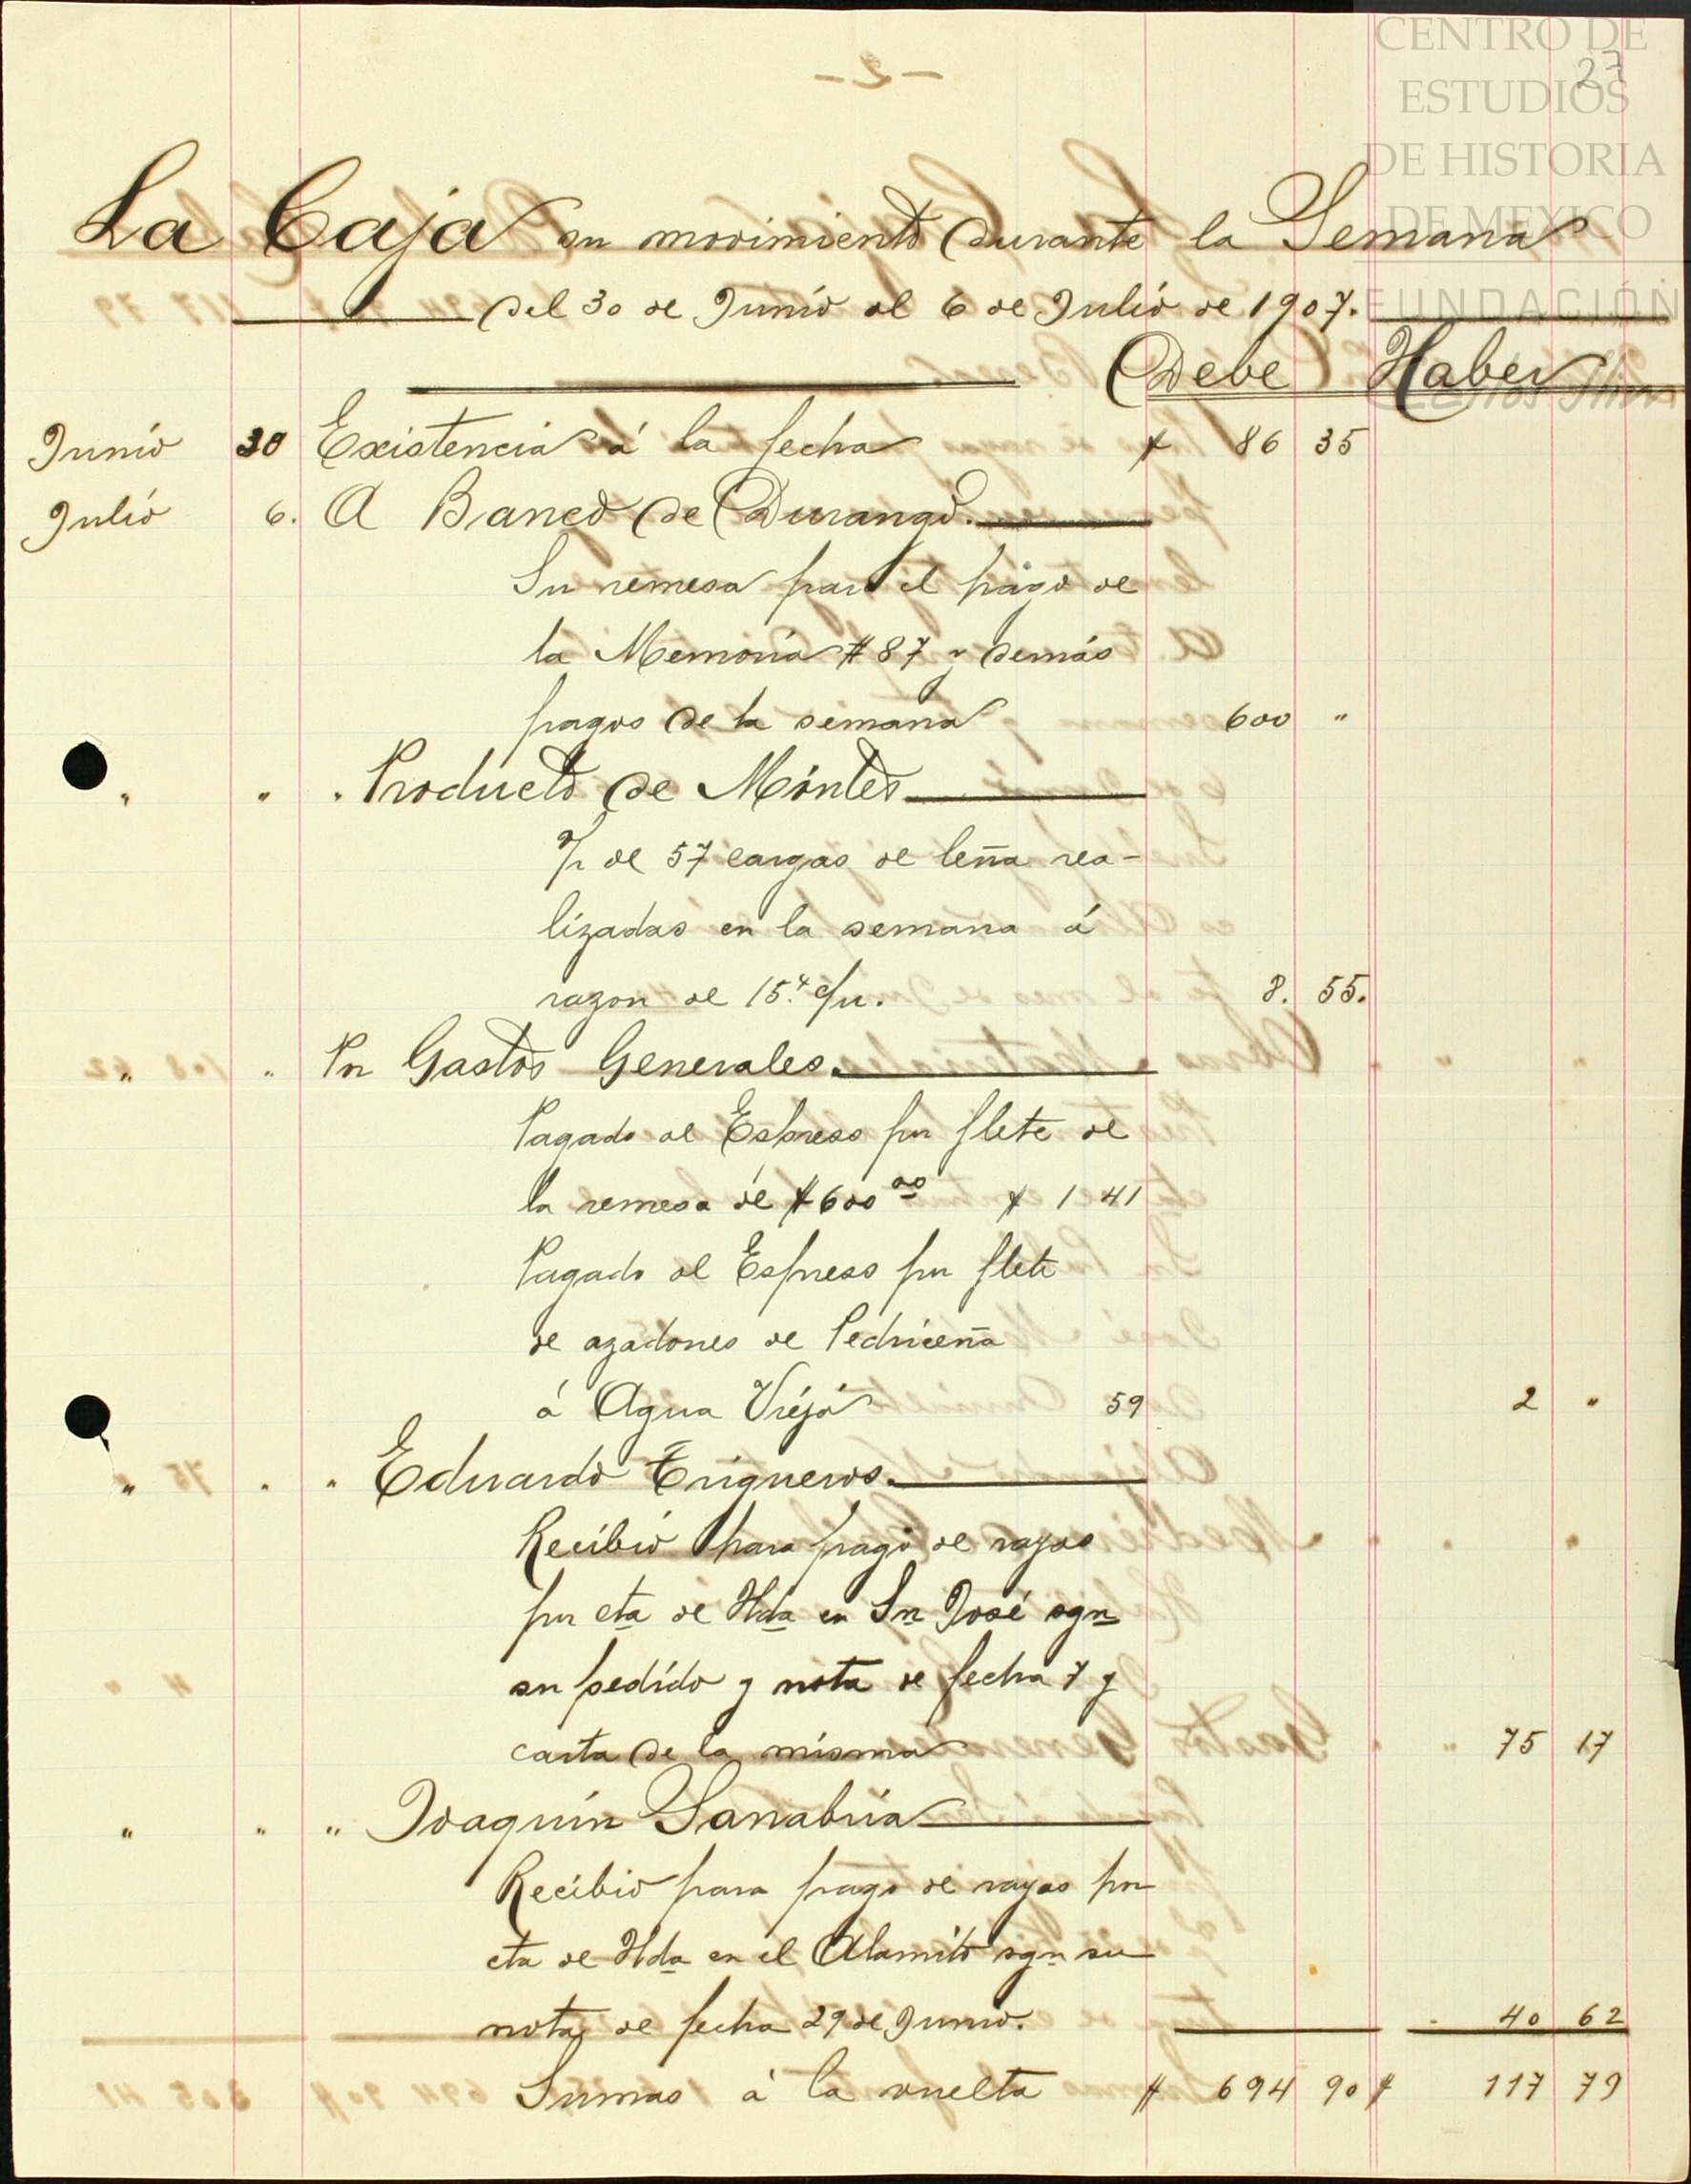 CENTRO DE
ESTUDIOS
DE HISTORIA
DE MEXICO
FUNDACIÓN
27
- 2 -
La Caja su movimiento durante la Semana
del 30 de Junio al 6 de Julio de 1907.
Debe Haber
Junio 30 Existencia á la fecha $ 86 35
Julio 6. A Banco de Durango.
Su remesa para el pago de
la Memoria #87 y demás
pagos de la semana 600 "
" " " Producto de Montes
P/r de 57 cargas de leña rea-
lizadas en la semana á
razon de 15.¢ c/u. 8. 55.
" " Por Gastos Generales.
Pagado al Espreso por flete de
la remesa de $600 00 $ 1 41
Pagado al Espreso por flete
de azadones de Pedriceña
á Agua Vieja 59 2 "
" " " Eduardo Trigueros.
Recibió para pago de rayas
por cta de Hda en Sn José sgn
su pedido y nota de fecha 7 y
carta de la misma 75 17
" " " Joaquin Sanabria
Recibió para pago de rayas por
cta de Hda en el Alamito sgn su
nota de fecha 29 de Junio. 40 62
Sumas á la vuelta $ 694 90 $ 117 79